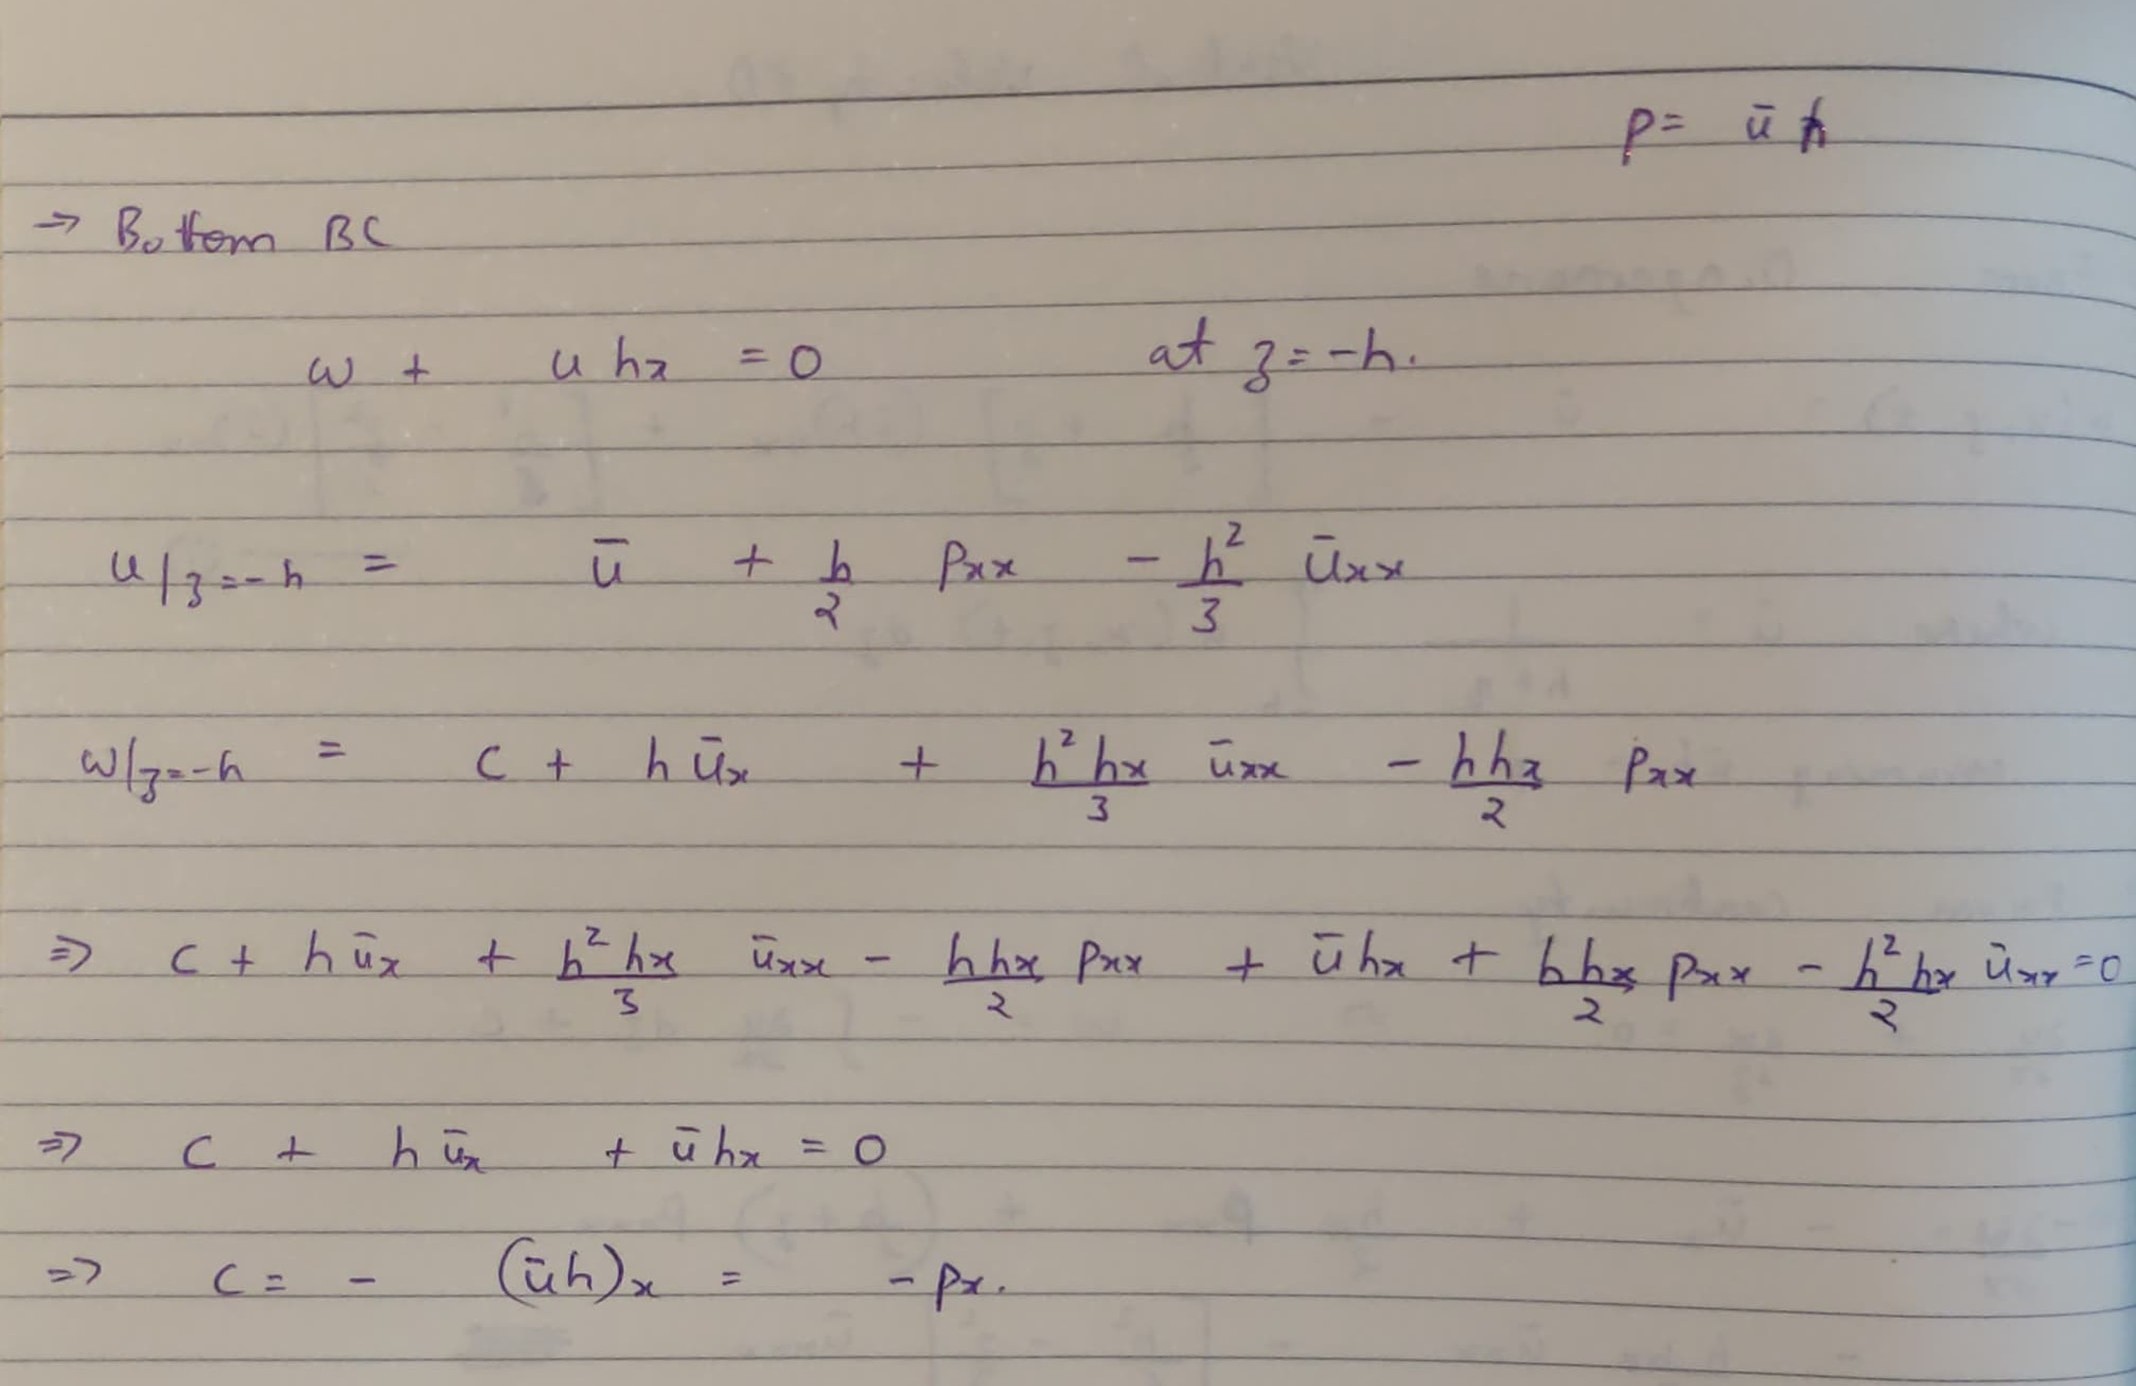 p = ū h
→ Bottom BC
w + u hx = 0 at z = -h.
u|z=-h = ū + h/2 pxx - h²/3 ūxx
w|z=-h = c + h ūx + h² hx/3 ūxx - h hx/2 pxx
⇒ c + h ūx + h² hx/3 ūxx - h hx/2 pxx + ū hx + h hx/2 pxx - h² hx/2 ūxx = 0
⇒ c + h ūx + ū hx = 0
⇒ c = - (ūh)x = - px.